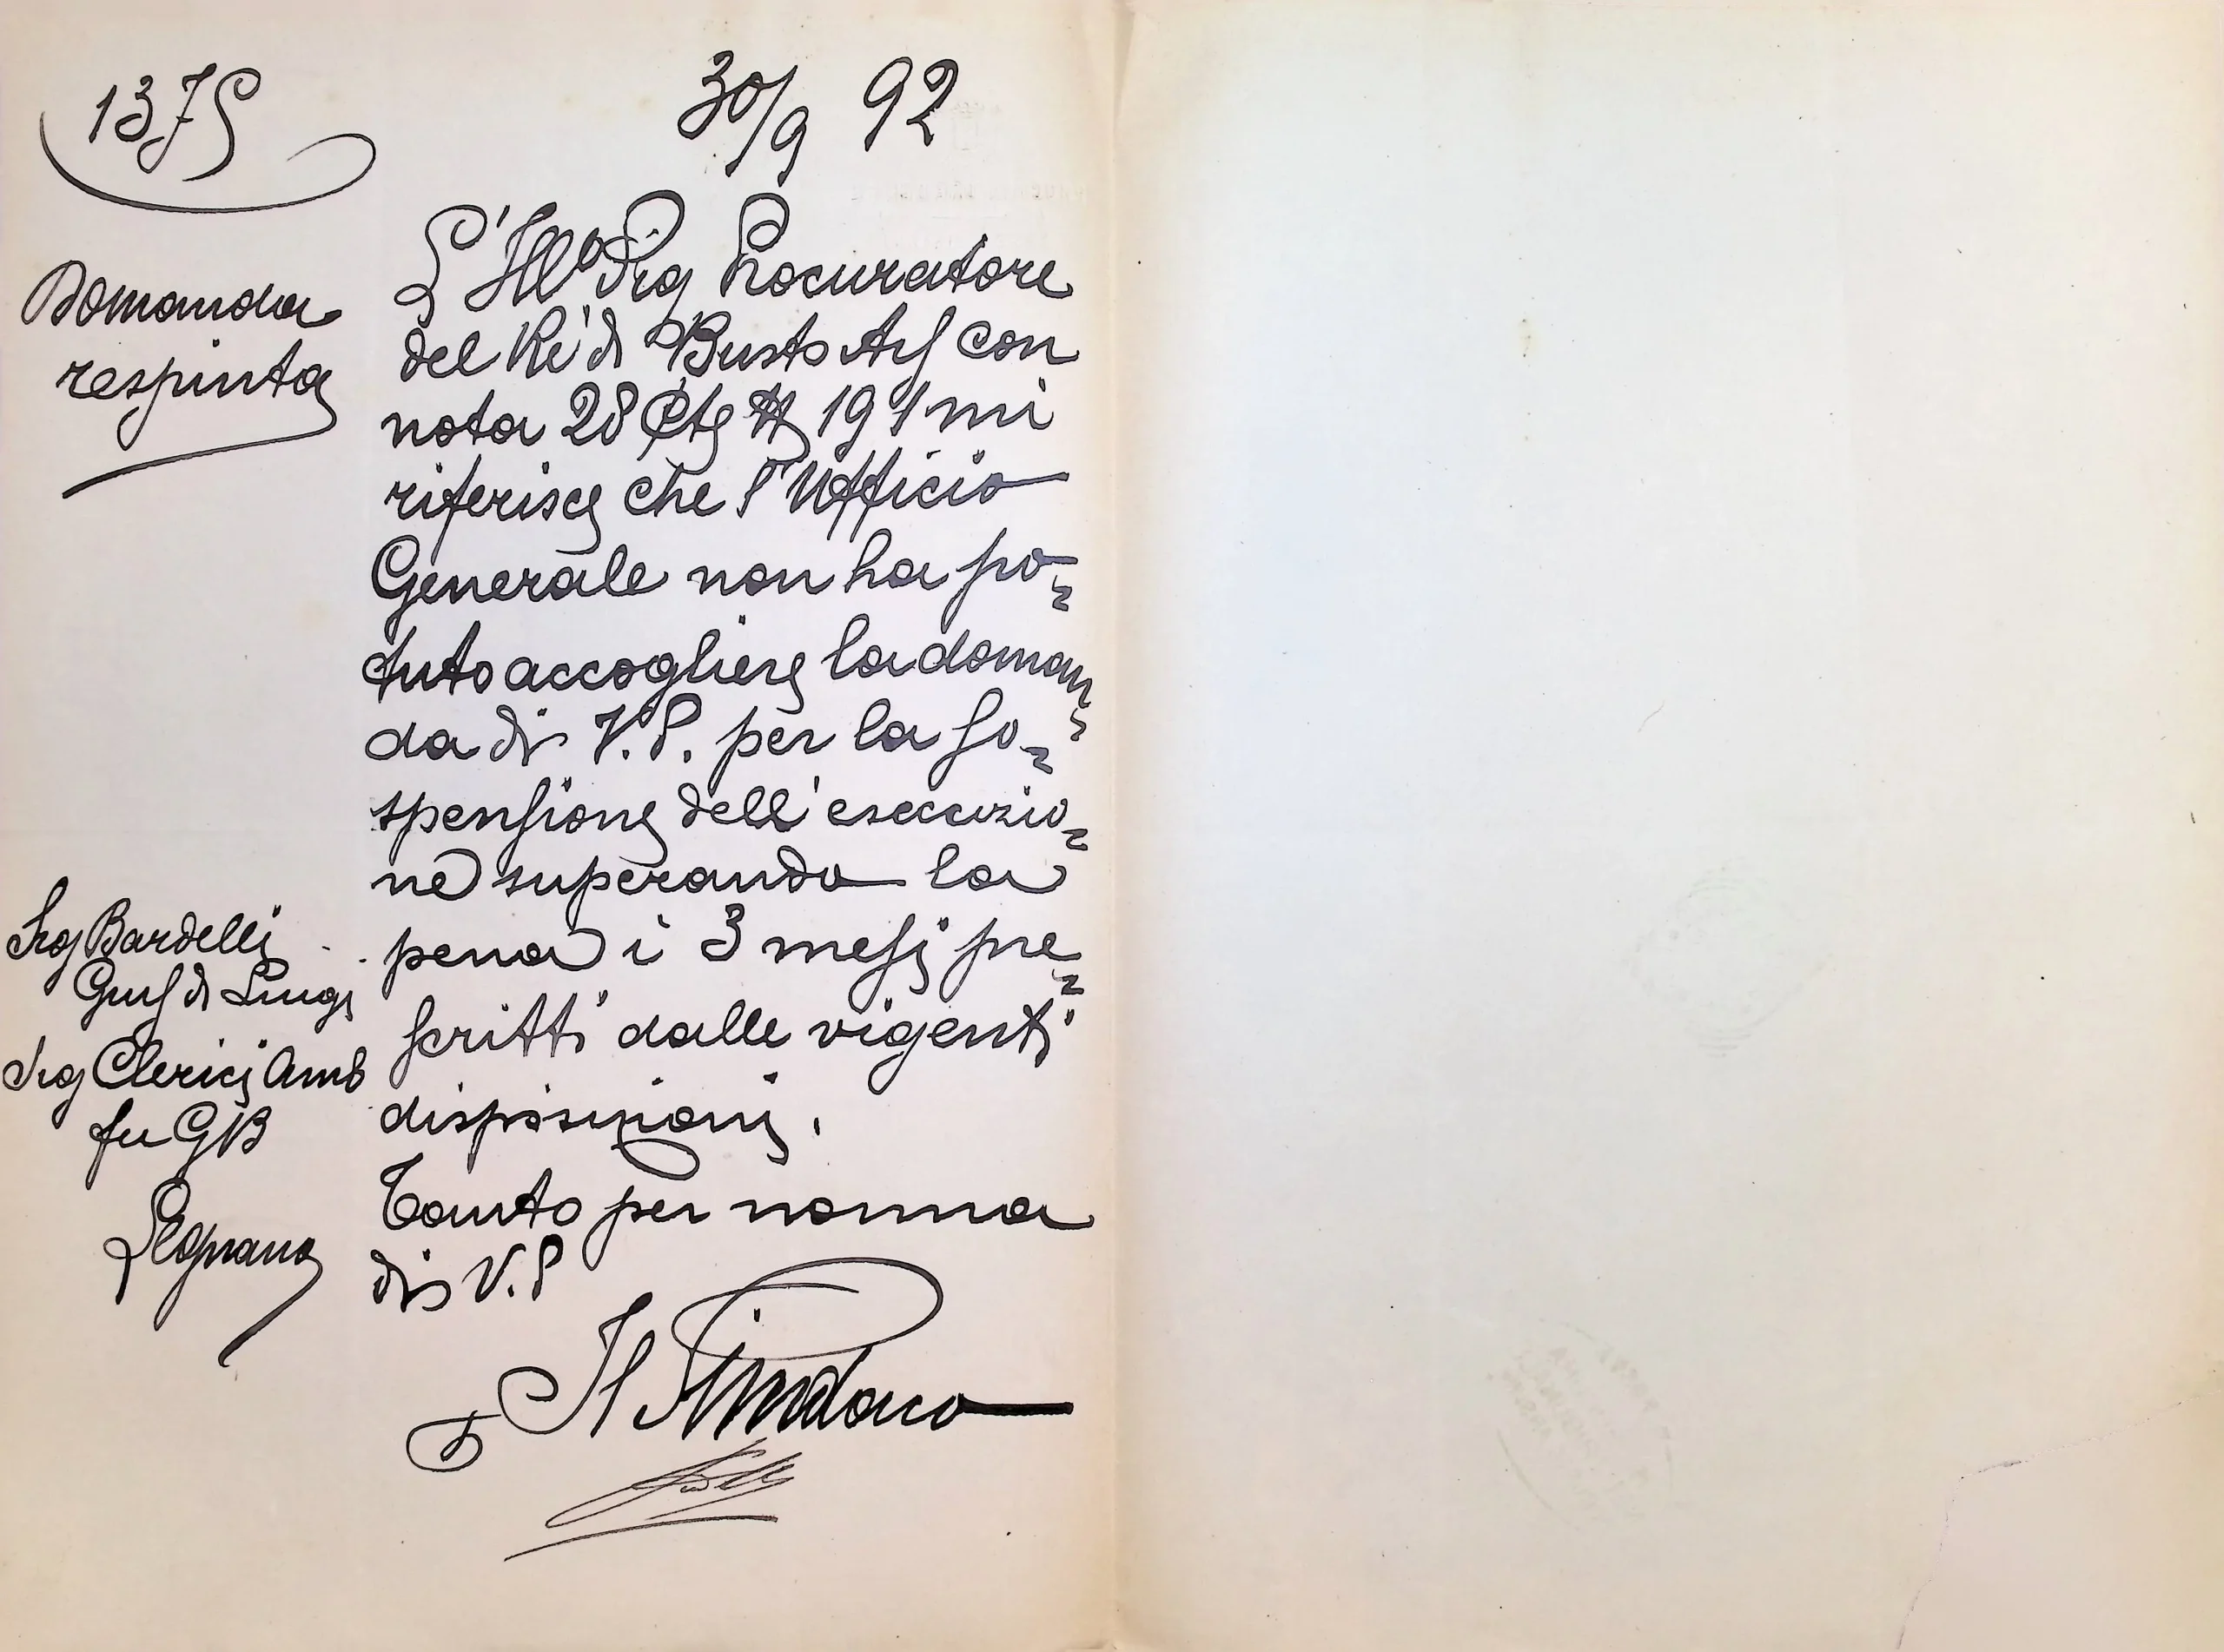 1375
30/9 92
Domanda
respinta
L'Illo Sig Procuratore
del Re' di Busto Ars con
nota 28 Cte N 191 mi
riferisce che l'Ufficio
Generale non ha po=
tuto accogliere la doman=
da di V.S. per la so=
spensione dell'esecuzio=
ne superando la
pena i 3 mesi pre=
scritti dalle vigenti
disposizioni.
Tanto per norma
di V.S
Il Sindaco
Sig Bardelli
Gius di Luigi
Sig Clerici Amb
fu GB
Legnano